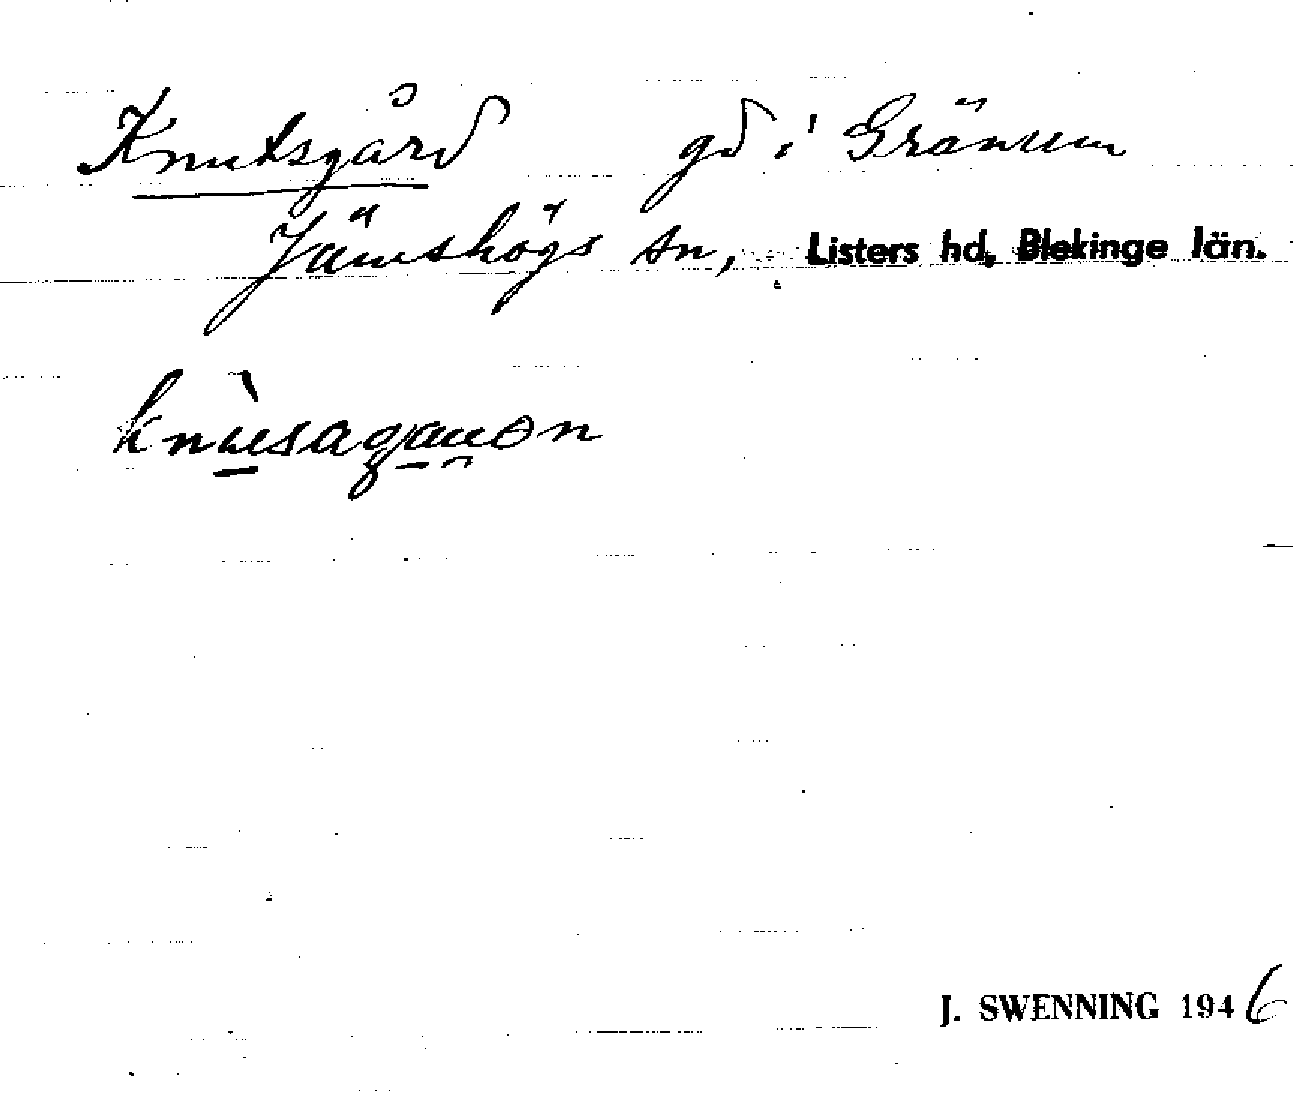 Knutsgård gd i Gränum
Jämshögs sn, Listers hd, Blekinge län.
J. SWENNING 1946